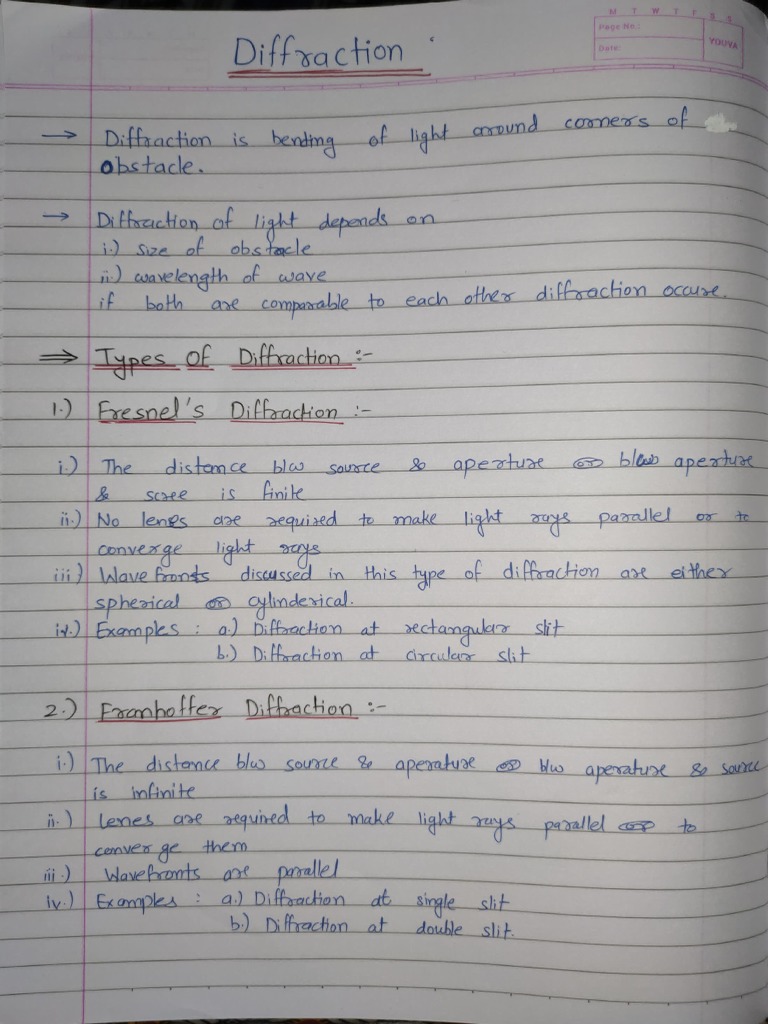 M T W T F S S
Page No.:
Date:
YOUVA
Diffraction
→ Diffraction is bending of light around corners of
obstacle.
→ Diffraction of light depends on
i.) size of obstacle
ii.) wavelength of wave
if both are comparable to each other diffraction occure.
⇒ Types Of Diffraction :-
1.) Fresnel's Diffraction :-
i.) The distance b/w source & aperture or b/w aperture
& scree is finite
ii.) No lenes are required to make light rays parallel or to
converge light rays
iii) Wave fronts discussed in this type of diffraction are either
spherical or cylinderical.
iv.) Examples : a.) Diffraction at rectangular slit
b.) Diffraction at circular slit
2.) Fromhoffer Diffraction :-
i.) The distance b/w source & aperature or b/w aperature & source
is infinite
ii.) lenes are required to make light rays parallel or to
converge them
iii.) Wavefronts are parallel
iv.) Examples : a.) Diffraction at single slit
b.) Diffraction at double slit.